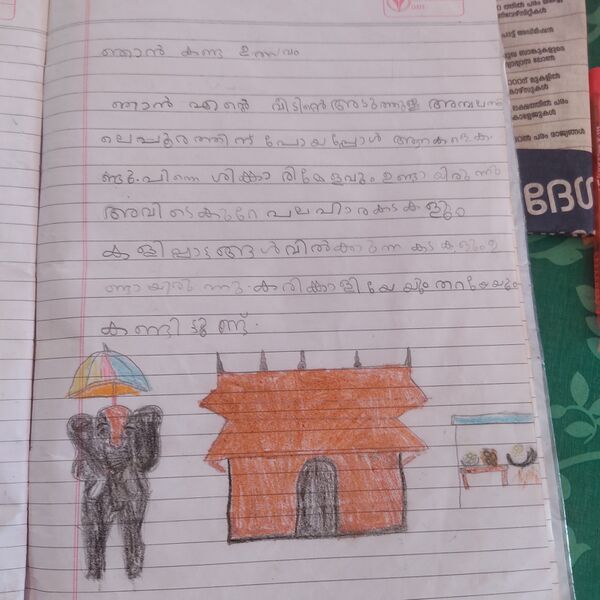 DATE
ഞാൻ കണ്ട ഉത്സവം
ഞാൻ എന്റെ വീടിന്റെ അടുത്തുള്ള അമ്പല
ലെ പൂരത്തിന് പോയപ്പോൾ ആനകളെ ക
ണ്ടു. പിന്നെ ശിങ്കാരിമേളവും ഉണ്ടായിരുന്നു
അവിടെ കുറേ പലഹാരകടകളും
കളിപ്പാട്ടങ്ങൾ വിൽക്കുന്ന കടകളും ഉ
ണ്ടായിരുന്നു. കരികാളിയേയും തറയേയും
കണ്ടിട്ടുണ്ട്.